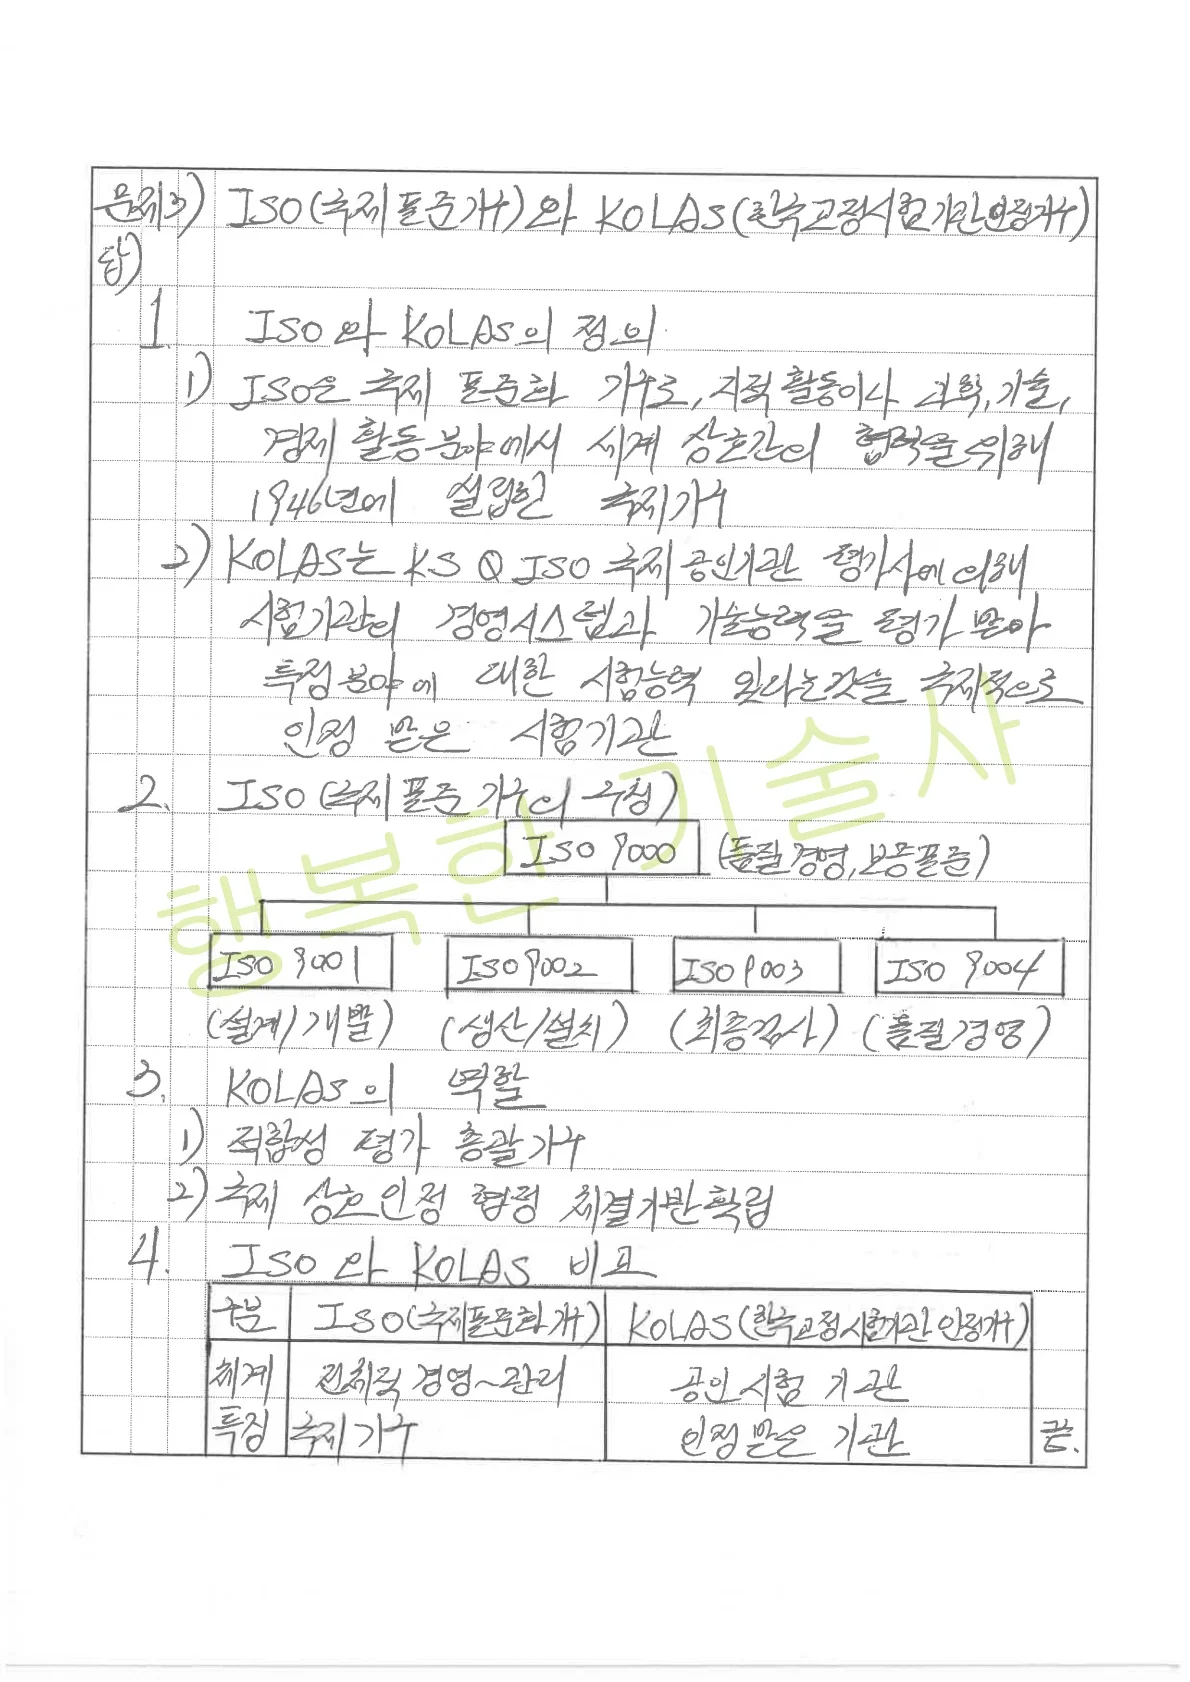 문제3) ISO(국제표준기구)와 KOLAS(한국교정시험기관인정기구)
답)
1. ISO와 KOLAS의 정의
1) ISO은 국제 표준화 기구로, 지적활동이나 과학, 기술,
경제 활동분야에서 세계 상호간의 협력을 위해
1946년에 설립한 국제기구
2) KOLAS는 KS Q ISO 국제 공인기관 평가사에 의해
시험기관의 경영시스템과 기술능력을 평가 받아
특정분야에 대한 시험능력 있다는것을 국제적으로
인정 받은 시험기관
2. ISO (국제 표준 기구의 구성)
ISO 9000 (품질경영, 보증표준)
ISO 9001 ISO 9002 ISO 9003 ISO 9004
(설계/개발) (생산/설치) (최종검사) (품질경영)
3. KOLAS의 역할
1) 적합성 평가 총괄기구
2) 국제 상호인정 협정 체결기반확립
4. ISO와 KOLAS 비교
구분 ISO(국제표준화기구) KOLAS(한국교정시험기관 인정기구)
체계 전체적 경영~관리 공인시험 기관
특징 국제기구 인정받은 기관 끝.
행복한기술사